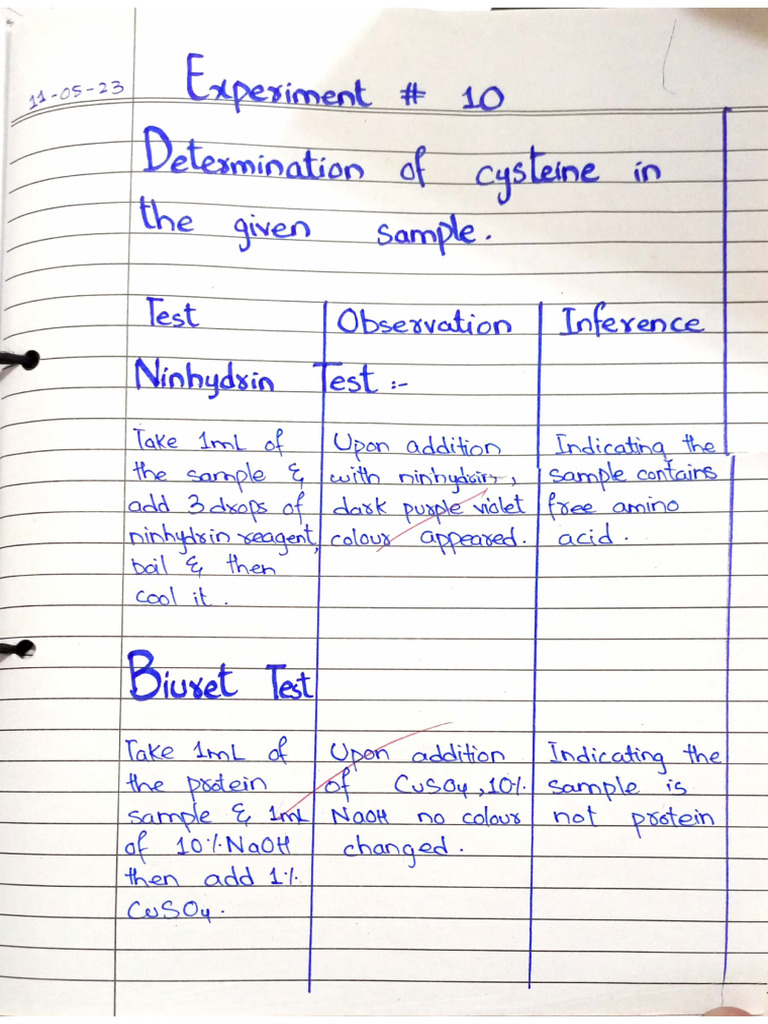 11-05-23
Experiment # 10
Determination of cysteine in
the given sample.
Test
Observation
Inference
Ninhydrin Test :-
Take 1mL of
the sample &
add 3 drops of
ninhydrin reagent,
boil & then
cool it.
Upon addition
with ninhydrin,
dark purple violet
colour appeared.
Indicating the
sample contains
free amino
acid.
Biuret Test
Take 1mL of
the protein
sample & 1mL
of 10% NaOH
then add 1%
CuSO4.
Upon addition
of CuSO4, 10%
NaOH no colour
changed.
Indicating the
sample is
not protein